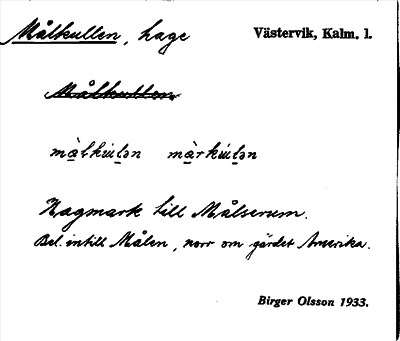 Målkullen, hage Västervik, Kalm. l.
Målkullen
màlkúlən màrkúlən
Hagmark till Målserum.
Bel. intill Målen, norr om gärdet Amerika.
Birger Olsson 1933.